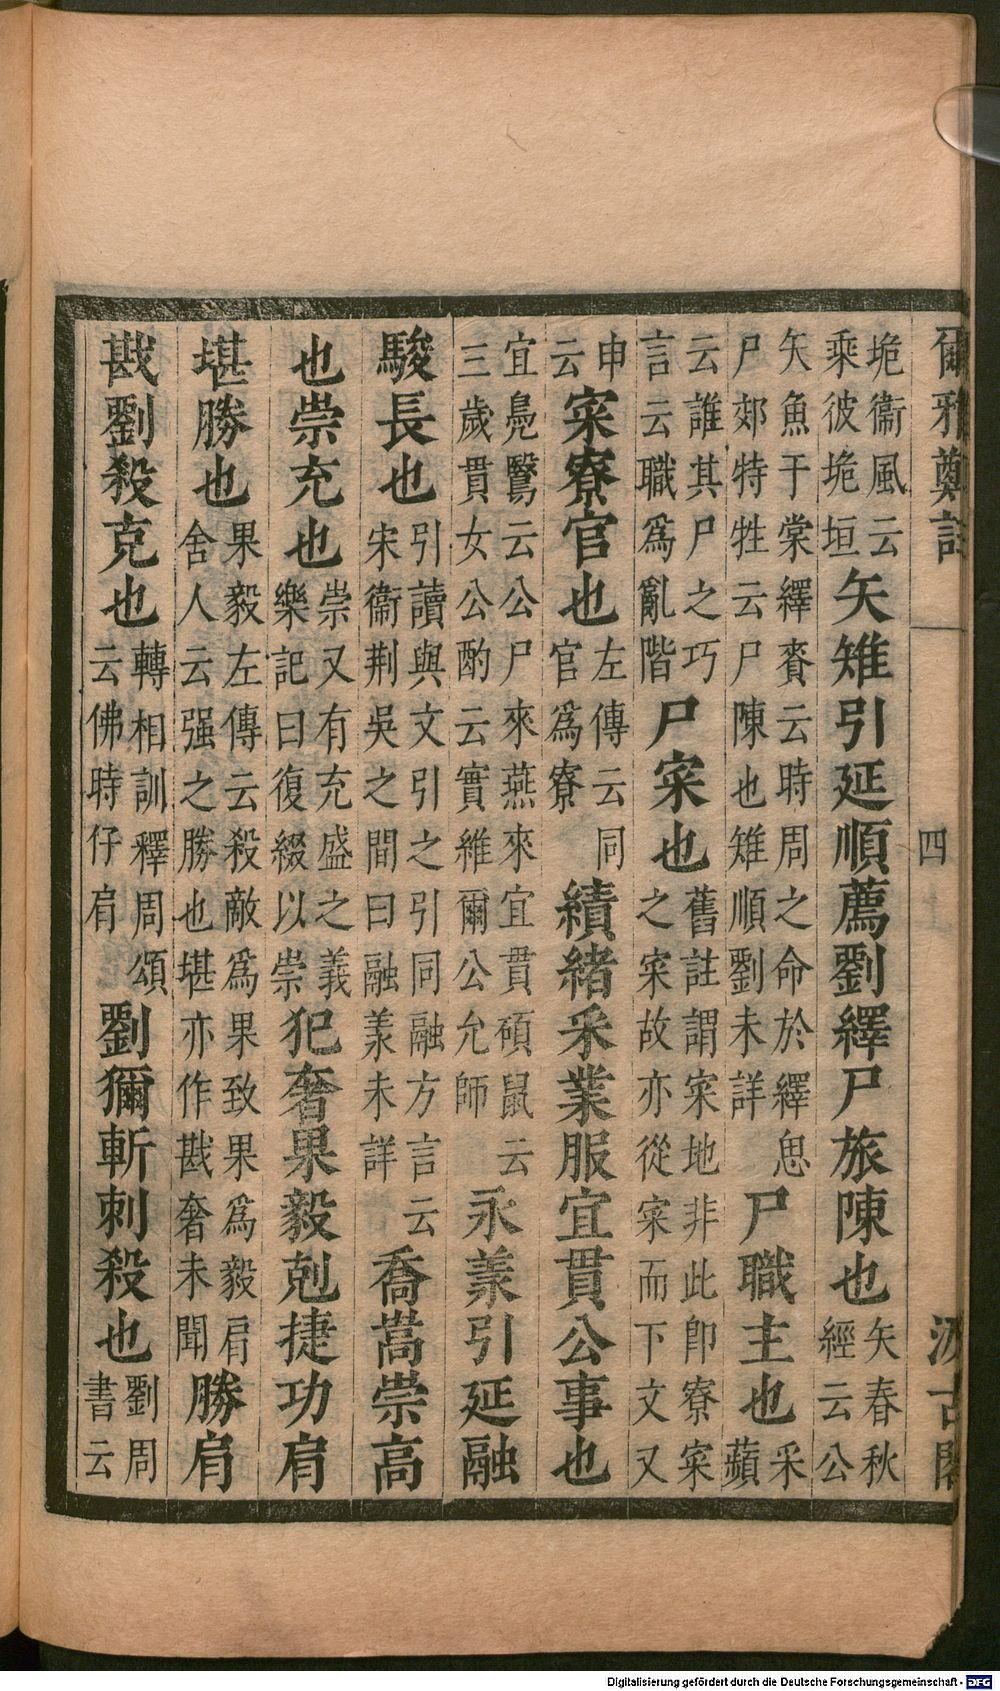 爾雅鄭註
四
汲古閣
垝衞風云
乘彼垝垣
矢雉引延順薦劉繹尸旅陳也
矢春秋
經云公
矢魚于棠繹賚云時周之命於繹思
尸郊特牲云尸陳也雉順劉未詳
尸職主也
采
蘋
云誰其尸之巧
言云職爲亂階
尸寀也
舊註謂寀地非此卽寮寀
之寀故亦從寀而下文又
申
云
寀寮官也
左傳云同
官爲寮
績緒采業服宜貫公事也
宜鳧鷖云公尸來燕來宜貫碩鼠云
三歲貫女公酌云實維爾公允師
永羕引延融
駿長也
引讀與文引之引同融方言云
宋衞荆吳之間曰融羕未詳
喬嵩崇高
也崇充也
崇又有充盛之義
樂記曰復綴以崇
犯奢果毅剋捷功肩
堪勝也
果毅左傳云殺敵爲果致果爲毅肩
舍人云强之勝也堪亦作戡奢未聞
勝肩
戡劉殺克也
轉相訓釋周頌
云佛時仔肩
劉獮斬刺殺也
劉周
書云
Digitalisierung gefördert durch die Deutsche Forschungsgemeinschaft - DFG